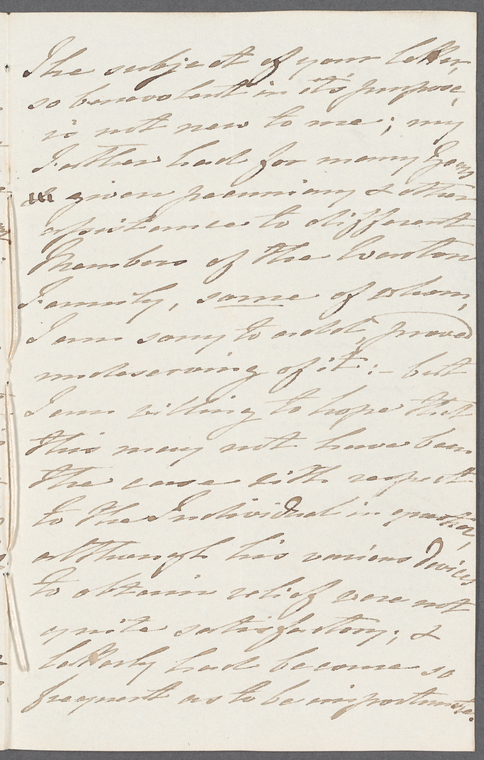 The subject of your letter,
so benevolent in it's purpose,
is not new to me; my
Father had for many years
given pecuniary & other
assistance to different
Members of the
Family, some of whom,
I am sorry to add, proved
undeserving of it: - but
I am willing to hope that
this may not have been
the case with respect
to the Individual in question,
although his various devices
to obtain relief were not
quite satisfactory; &
latterly had become so
frequent as to be importunate.